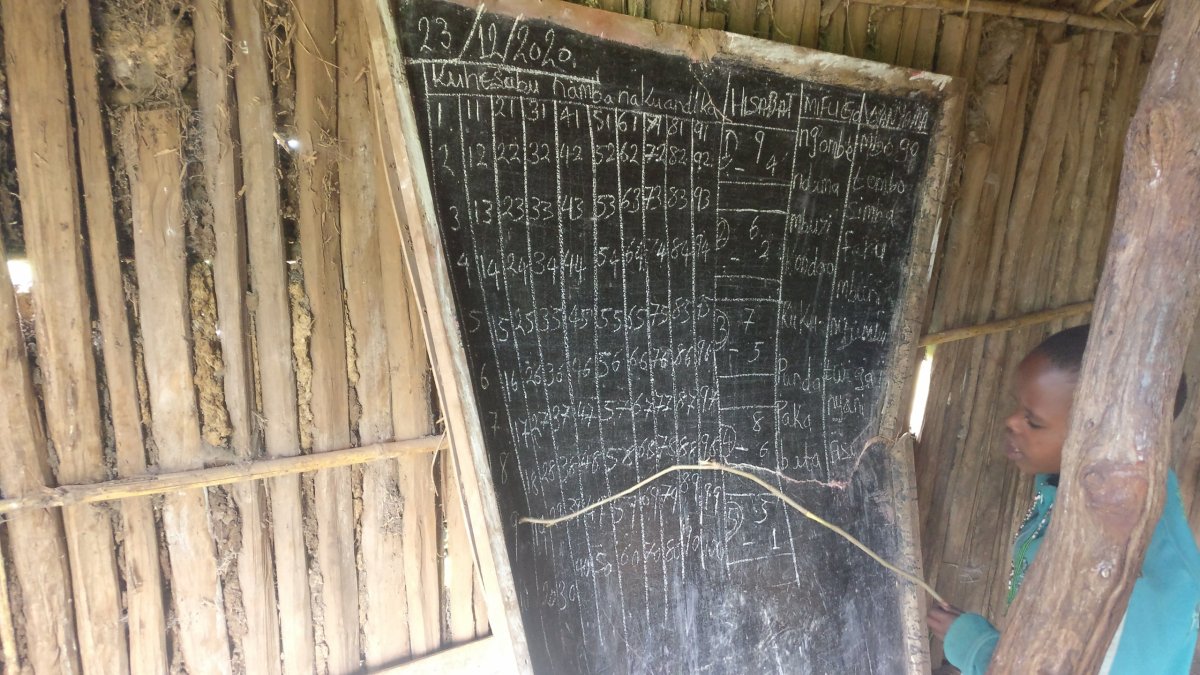 23/12/2020.
Kuhesabu namba na kuandika HISABAT MIFUGO
1 11 21 31 41 51 61 71 81 91 1) 9 - 4 ngombe mbogo
2 12 22 32 42 52 62 72 82 92 tembo
3 13 23 33 43 53 63 73 83 93 2) 6 - 2 mbuzi simba
4 14 24 34 44 54 64 74 84 94 kondoo faru
5 15 25 35 45 55 65 75 85 95 3) 7 - 5 kuku
6 16 26 36 46 56 66 76 86 96 Punda twiga
7 17 27 37 47 57 67 77 87 97 4) 8 - 6 Paka nyani
8 18 28 38 48 58 68 78 88 98 bata
69 79 89 99 5) 5 - 1
60 70 80 90